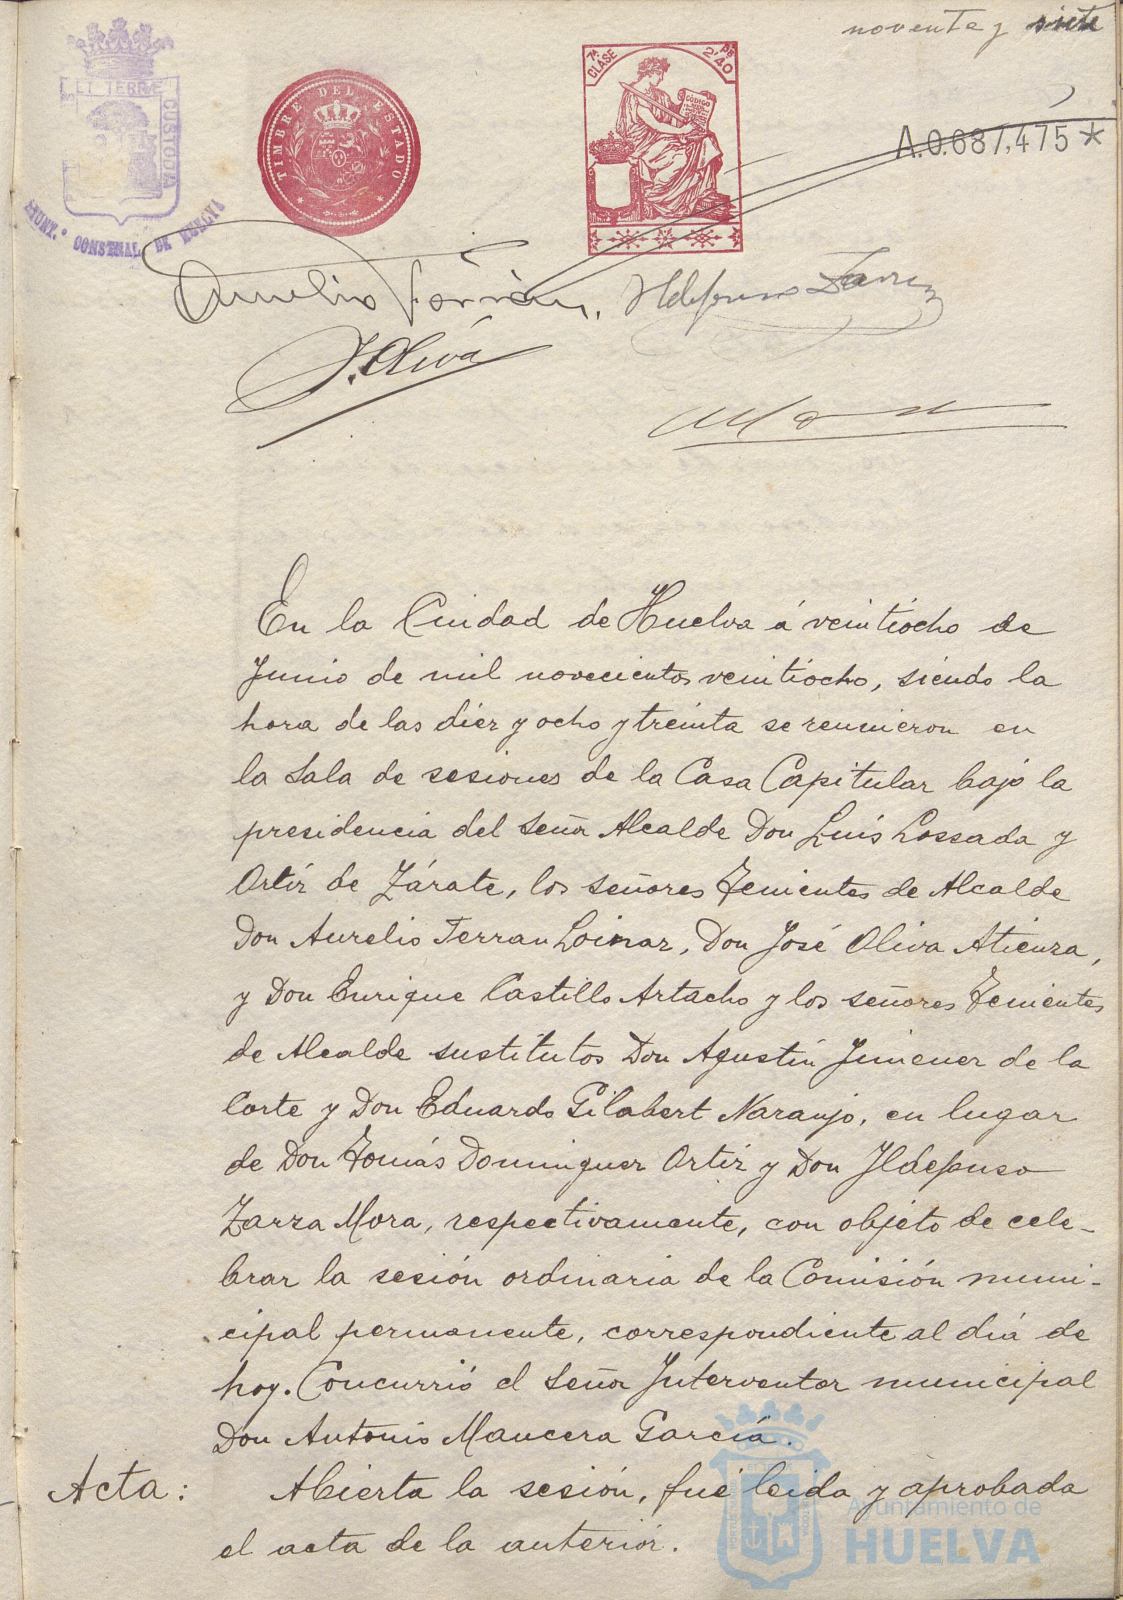 noventa y siete
ET TERRE
CUSTODIA
AYUNT.º CONST.NAL DE HUELVA
TIMBRE DEL ESTADO
7ª CLASE
PS 2'40
CÓDIGO
A.0.687,475*
Aurelio Terrán, Ildefonso Zarza
J. Oliva
En la Ciudad de Huelva á veintiocho de
Junio de mil novecientos veintiocho, siendo la
hora de las diez y ocho y treinta se reunieron en
la Sala de sesiones de la Casa Capitular bajo la
presidencia del Señor Alcalde Don Luís Lossada y
Ortíz de Zárate, los señores Tenientes de Alcalde
Don Aurelio Terran Loinaz, Don José Oliva Atienza,
y Don Enrique Castillo Artacho y los señores Tenientes
de Alcalde sustitutos Don Agustín Jimenez de la
Corte y Don Eduardo Gilabert Naranjo, en lugar
de Don Tomás Dominguez Ortiz y Don Ildefonso
Zarza Mora, respectivamente, con objeto de cele-
brar la sesión ordinaria de la Comisión muni-
cipal permanente, correspondiente al día de
hoy. Concurrió el Señor Interventor municipal
Don Antonio Mancera García.
Acta: Abierta la sesión, fué leida y aprobada
el acta de la anterior.
Ayuntamiento de
HUELVA